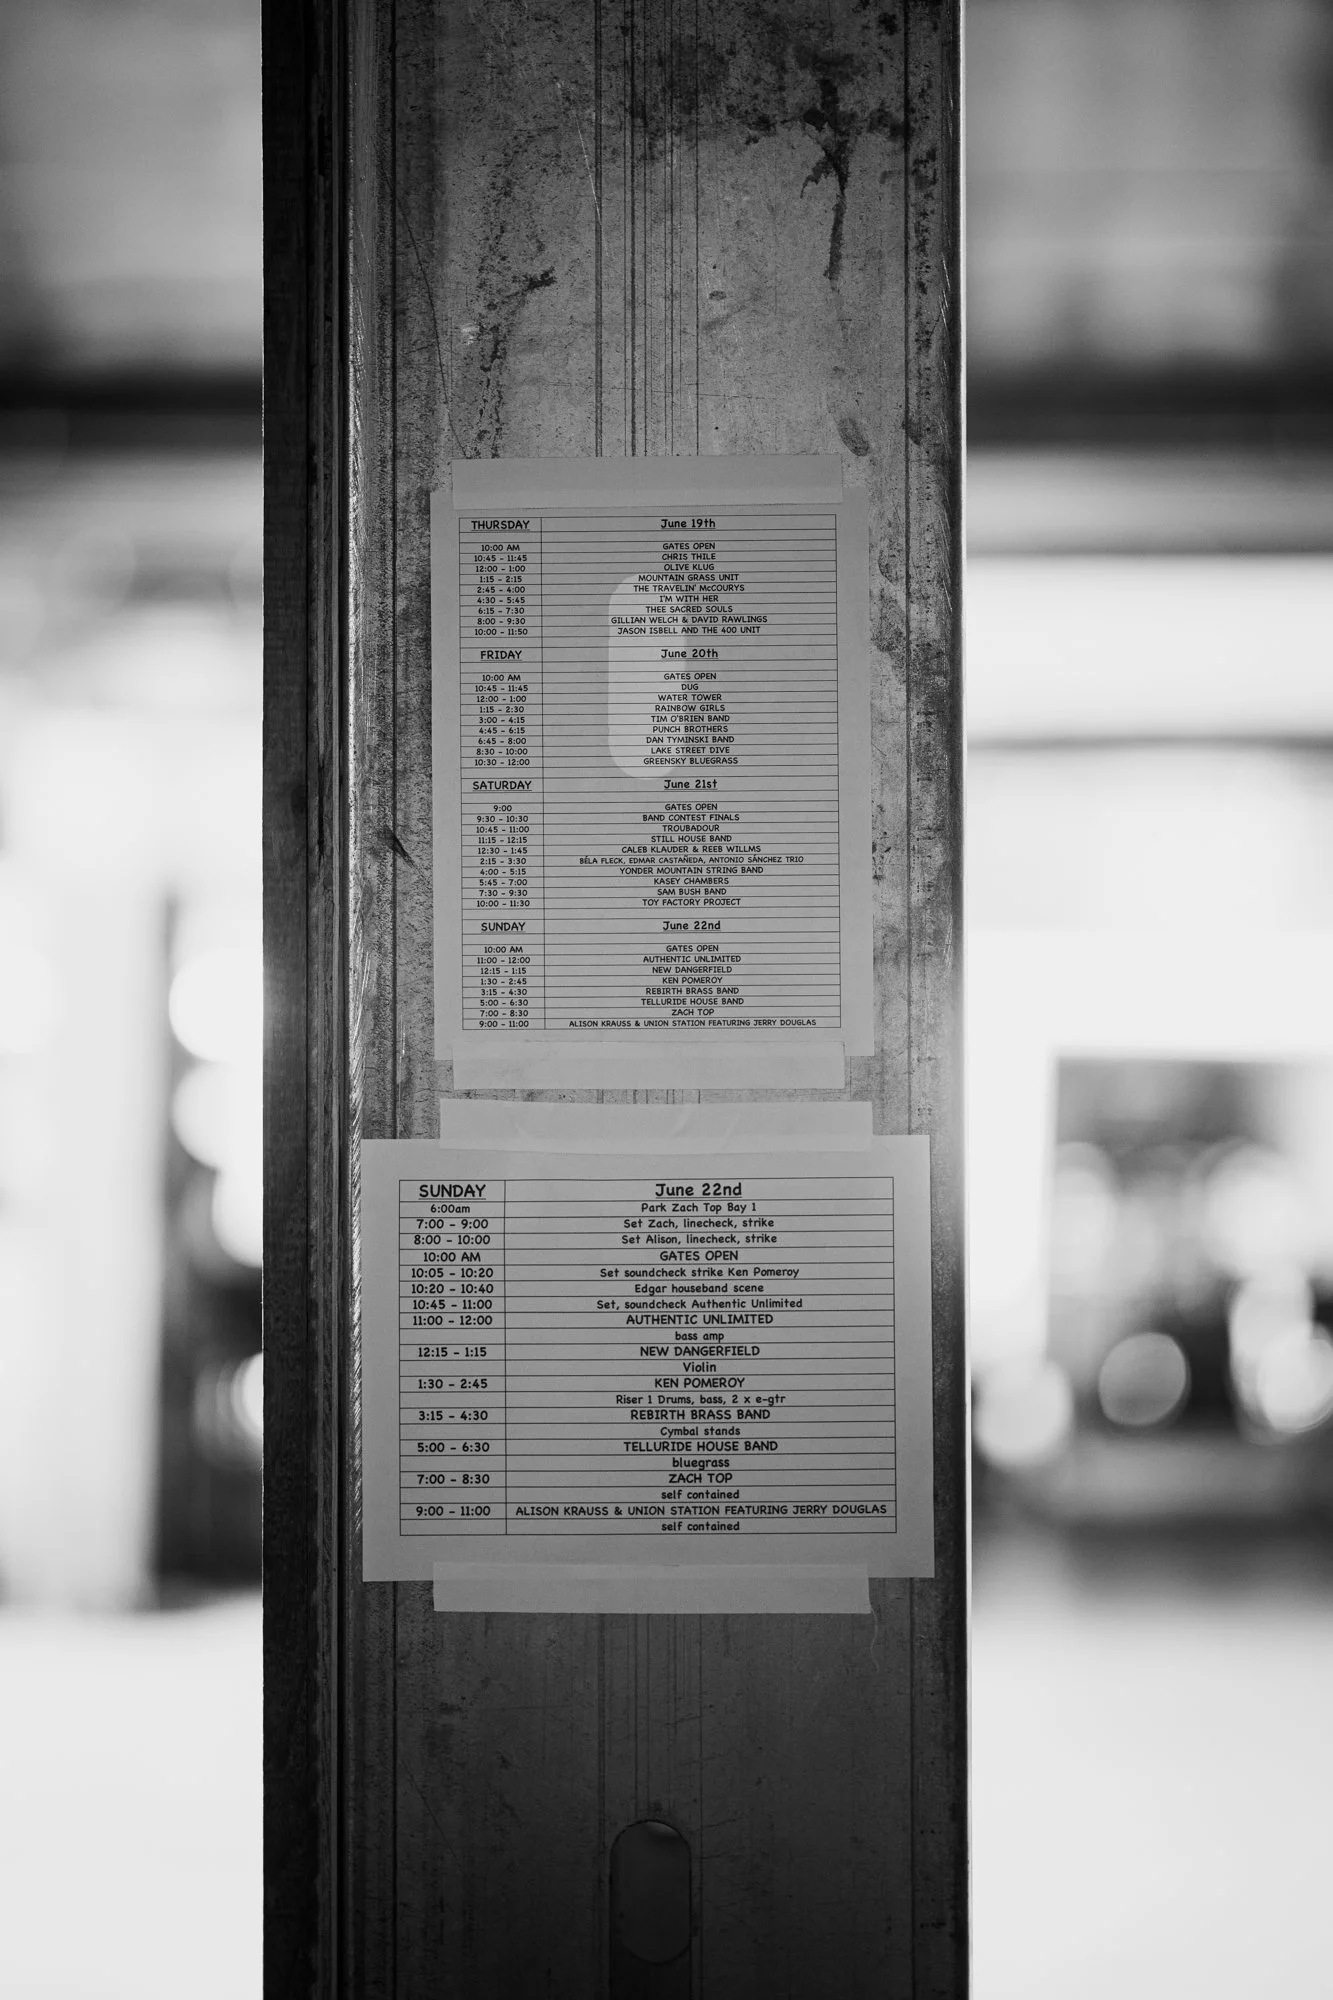 THURSDAY June 19th
10:00 AM GATES OPEN
10:45 - 11:45 CHRIS THILE
12:00 - 1:00 OLIVE KLUG
1:15 - 2:15 MOUNTAIN GRASS UNIT
2:45 - 4:00 THE TRAVELIN' McCOURYS
4:30 - 5:45 I'M WITH HER
6:15 - 7:30 THEE SACRED SOULS
8:00 - 9:30 GILLIAN WELCH & DAVID RAWLINGS
10:00 - 11:50 JASON ISBELL AND THE 400 UNIT
FRIDAY June 20th
10:00 AM GATES OPEN
10:45 - 11:45 DUG
12:00 - 1:00 WATER TOWER
1:15 - 2:30 RAINBOW GIRLS
3:00 - 4:15 TIM O'BRIEN BAND
4:45 - 6:15 PUNCH BROTHERS
6:45 - 8:00 DAN TYMINSKI BAND
8:30 - 10:00 LAKE STREET DIVE
10:30 - 12:00 GREENSKY BLUEGRASS
SATURDAY June 21st
9:00 GATES OPEN
9:30 - 10:30 BAND CONTEST FINALS
10:45 - 11:00 TROUBADOUR
11:15 - 12:15 STILL HOUSE BAND
12:30 - 1:45 CALEB KLAUDER & REEB WILLMS
2:15 - 3:30 BÉLA FLECK, EDMAR CASTAÑEDA, ANTONIO SÁNCHEZ TRIO
4:00 - 5:15 YONDER MOUNTAIN STRING BAND
5:45 - 7:00 KASEY CHAMBERS
7:30 - 9:30 SAM BUSH BAND
10:00 - 11:30 TOY FACTORY PROJECT
SUNDAY June 22nd
10:00 AM GATES OPEN
11:00 - 12:00 AUTHENTIC UNLIMITED
12:15 - 1:15 NEW DANGERFIELD
1:30 - 2:45 KEN POMEROY
3:15 - 4:30 REBIRTH BRASS BAND
5:00 - 6:30 TELLURIDE HOUSE BAND
7:00 - 8:30 ZACH TOP
9:00 - 11:00 ALISON KRAUSS & UNION STATION FEATURING JERRY DOUGLAS
SUNDAY June 22nd
6:00am Park Zach Top Bay 1
7:00 - 9:00 Set Zach, linecheck, strike
8:00 - 10:00 Set Alison, linecheck, strike
10:00 AM GATES OPEN
10:05 - 10:20 Set soundcheck strike Ken Pomeroy
10:20 - 10:40 Edgar houseband scene
10:45 - 11:00 Set, soundcheck Authentic Unlimited
11:00 - 12:00 AUTHENTIC UNLIMITED
bass amp
12:15 - 1:15 NEW DANGERFIELD
Violin
1:30 - 2:45 KEN POMEROY
Riser 1 Drums, bass, 2 x e-gtr
3:15 - 4:30 REBIRTH BRASS BAND
Cymbal stands
5:00 - 6:30 TELLURIDE HOUSE BAND
bluegrass
7:00 - 8:30 ZACH TOP
self contained
9:00 - 11:00 ALISON KRAUSS & UNION STATION FEATURING JERRY DOUGLAS
self contained